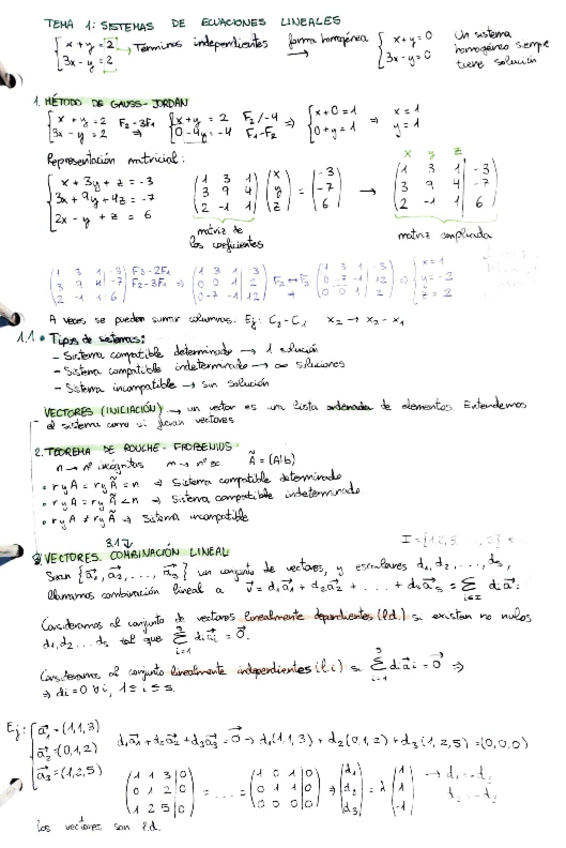 TEMA 1: SISTEMAS DE ECUACIONES LINEALES
{x + y = 2
3x - y = 2} → Términos independientes forma homogénea → {x + y = 0
3x - y = 0 Un sistema homogéneo siempre tiene solución
1. MÉTODO DE GAUSS-JORDAN
{x + y = 2
3x - y = 2 F2 - 3F1 ⇒ {x + y = 2
0 - 4y = -4 F2/-4
F1 - F2 ⇒ {x + 0 = 1
0 + y = 1 ⇒ x = 1
y = 1
Representación matricial:
{x + 3y + z = -3
3x + 9y + 4z = -7
2x - y + z = 6
(1 3 1
3 9 4
2 -1 1) (x
y
z) = (-3
-7
6) →
x y z
(1 3 1 | -3
3 9 4 | -7
2 -1 1 | 6)
matriz de los coeficientes
matriz ampliada
(1 3 1 | -3
3 9 4 | -7
2 -1 1 | 6) ⇒ (1 3 1
0 0 1
0 -7 -1) ⇒ {x = 1
y = -2
z = 2
A veces se pueden sumar columnas. Ej: C2 - C1 x2 → x2 - x1
1.1 • Tipos de sistemas:
- Sistema compatible determinado → 1 solución
- Sistema compatible indeterminado → ∞ soluciones
- Sistema incompatible → sin solución
VECTORES (INICIACIÓN) → un vector es una lista ordenada de elementos. Entendemos
el sistema como si fueran vectores
2. TEOREMA DE ROUCHE-FROBENIUS
n → nº incógnitas m → nº ec Ã = (A|b)
• rg A = rg Ã = n ⇒ Sistema compatible determinado
• rg A = rg Ã < n ⇒ Sistema compatible indeterminado
• rg A ≠ rg Ã ⇒ Sistema incompatible
3.1
3 VECTORES. COMBINACIÓN LINEAL
Sean {a1, a2, ..., as} un conjunto de vectores, y escalares d1, d2, ..., ds,
llamamos combinación lineal a v = d1a1 + d2a2 + ... + dsas = Σ i∈I di ai
Consideramos al conjunto de vectores linealmente dependientes (l.d.) si existen no nulos
d1, d2 ... ds tal que Σ i=1 di ai = 0.
Consideramos al conjunto linealmente independientes (l.i) si Σ i=1 di ai = 0 ⇒
⇒ di = 0 ∀i, 1 ≤ i ≤ s.
Ej: {a1 = (1,1,3)
a2 = (0,1,2)
a3 = (1,2,5)
d1a1 + d2a2 + d3a3 = 0 → d1(1,1,3) + d2(0,1,2) + d3(1,2,5) = (0,0,0)
(1 1 3 | 0
0 1 2 | 0
1 2 5 | 0) = ... = (1 0 1 | 0
0 1 1 | 0
0 0 0 | 0) ⇒ (d1
d2
d3) = λ (1
1
-1)
los vectores son l.d.